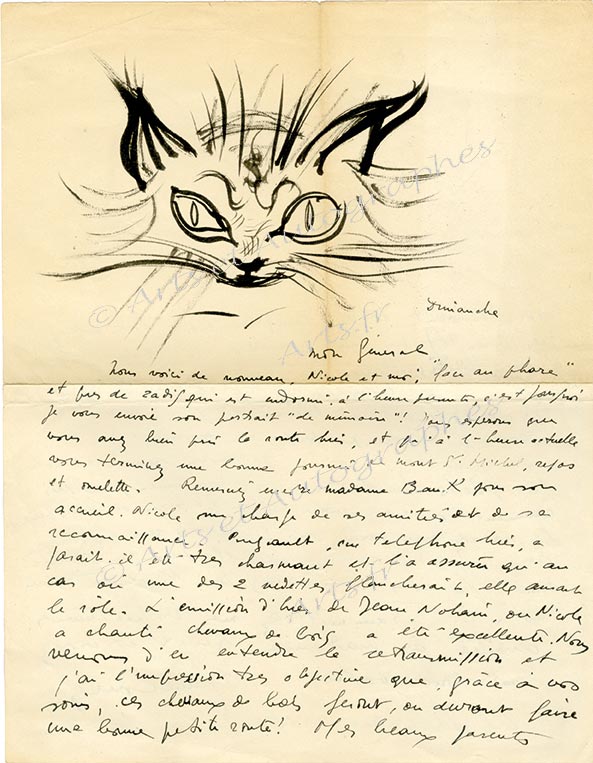 Dimanche
Mon Général
Nous voici de nouveau, Nicole et moi, "face au phare"
et près de Zadig qui est endormi, à l'heure présente, c'est pourquoi
je vous envoie son portrait "de mémoire"! Nous espérons que
vous avez bien pris la route hier, et qu'à l'heure actuelle
vous terminez une bonne journée, mont St Michel, repos
et omelette. Remerciez encore madame pour son
accueil. Nicole me charge de ses amitiés et de sa
reconnaissance. au téléphone hier, a
parait-il été très charmant et l'a assurée qu'au
cas où une des 2 vedettes flancherait, elle aurait
le rôle. L'émission d'hier de Jean Nohain, où Nicole
a chanté chevaux de bois a été excellente. Nous
venons d'en entendre la retransmission et
j'ai l'impression très objective que, grâce à vos
soins, ces chevaux de bois feront, ou devront faire
une bonne petite route! Mes beaux parents
© Arts et Autographes
Arts.fr